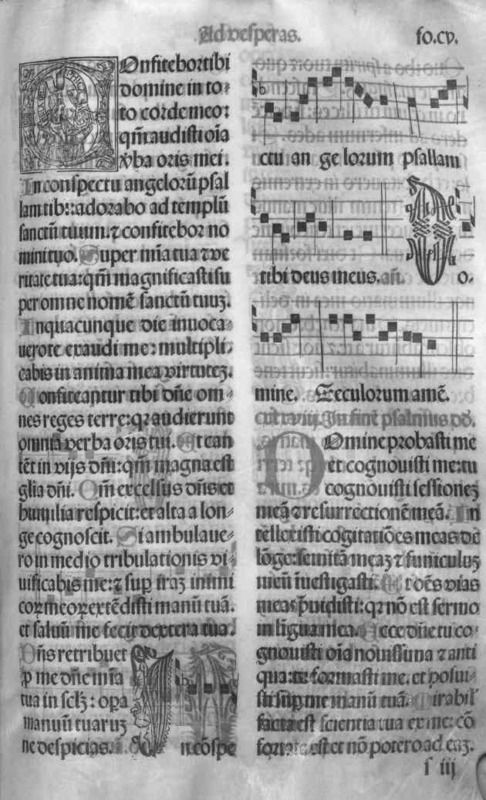 Ad vesperas.
fo.cv.
COnfitebor tibi
domine in to-
to corde meo:
qm̄ audisti oīa
v̄ba oris mei.
In conspectu angeloꝝ psal
lam tibi: adorabo ad templū
sanctū tuum. ⁊ confitebor no
mini tuo. Super mīa tua ⁊ ve
ritate tua: qm̄ magnificasti su
per omne nomē sanctū tuuꝫ.
In quacunque die invoca-
vero te exaudi me: multipli-
cabis in anima mea virtuteꝫ.
Confiteantur tibi dn̄e om-
nes reges terre: qꝛ audierunt
omnia verba oris tui. Et can
tēt in vijs dn̄i: qm̄ magna est
glīa dn̄i. Qm̄ excelsus dn̄s et
humilia respicit: et alta a lon-
ge cognoscit. Si ambulave-
ro in medio tribulationis vi-
vificabis me: ⁊ sup iraꝫ inimi
coꝝ meoꝝ extēdisti manū tuā.
et salvū me fecit dextera tua.
Dn̄s retribuet
ꝓ me dn̄e mīa
tua in sclꝫ: opa
manuū tuaruꝫ
ne despicias.
In cōspe
ctu an ge lorum psallam
tibi deus meus. an̄. Do.
mine. Seculorum amē.
In finē psalmus dd.
Domine probasti me
et cognovisti me: tu
cognovisti sessioneꝫ
meā ⁊ resurrectionē meā. In
tellexisti cogitatiōes meas de
lōge: semitā meaꝫ ⁊ funiculuꝫ
meū īvestigasti. Et oēs vias
meas p̄vidisti: qꝛ nō est sermo
in līgua mea. Ecce dn̄e tu co-
gnovisti oīa novissima ⁊ anti
qua: tu formasti me. et posui-
sti sup me manū tuā. Mirabil'
facta est scientia tua ex me: cō
fortata est et nō potero ad eaꝫ.
s iij